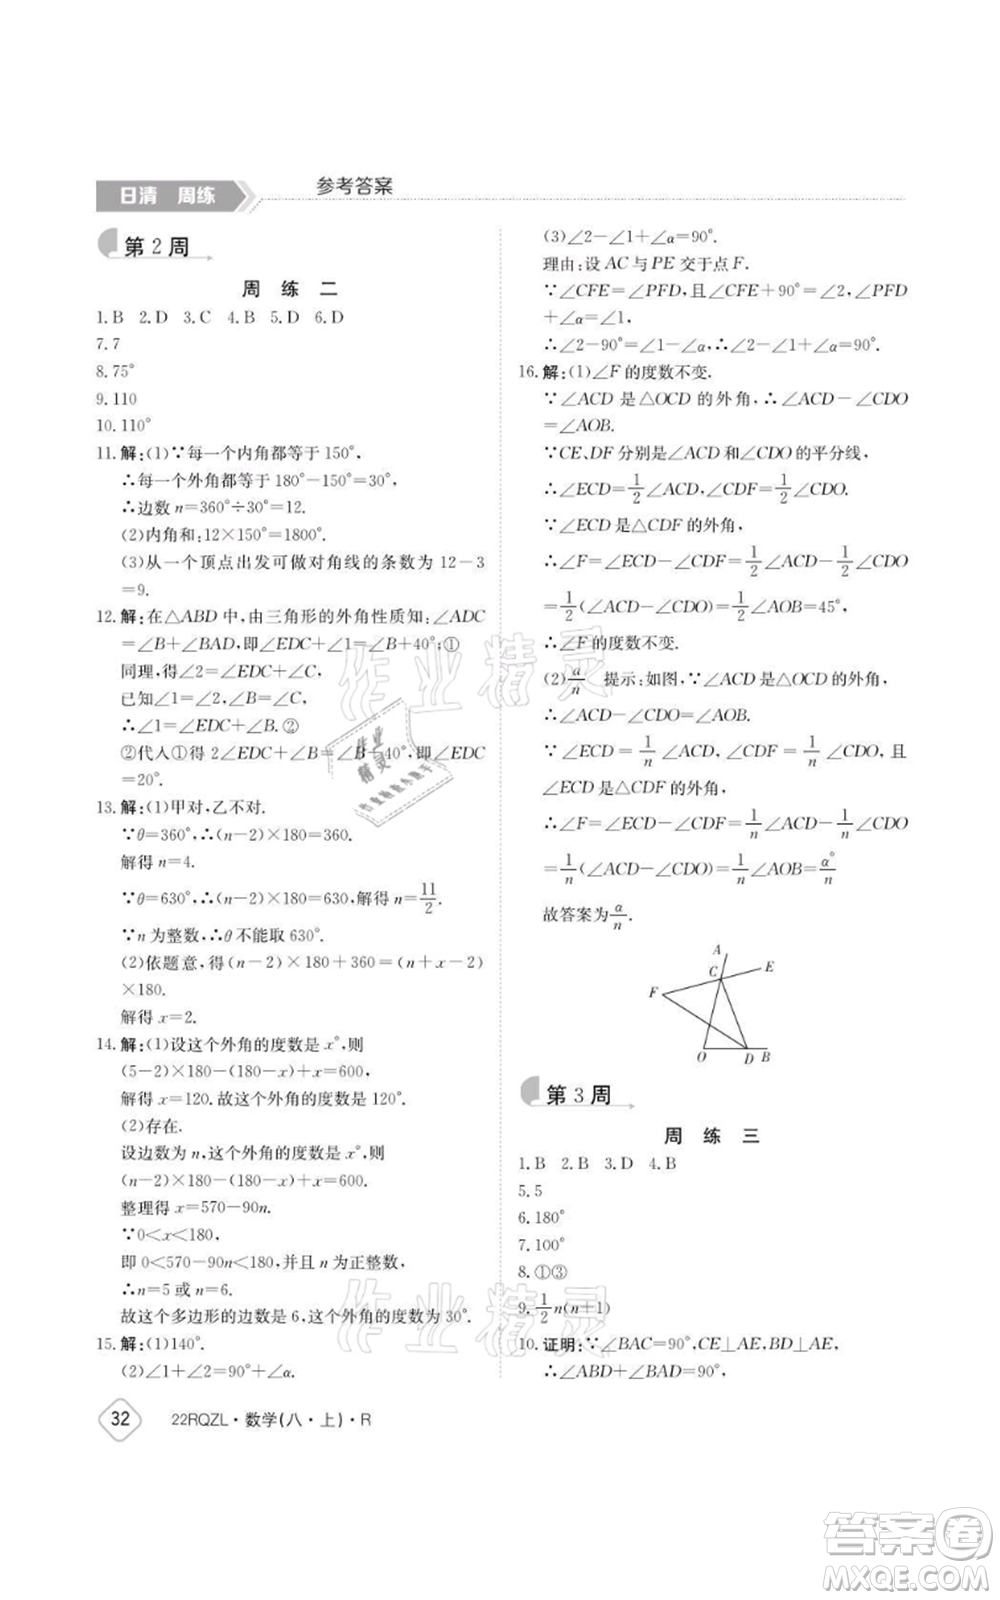 日清 周练
参考答案
第2周
周 练 二
1.B 2.D 3.C 4.B 5.D 6.D
7.7
8.75°
9.110
10.110°
11.解:(1)∵每一个内角都等于150°,
∴每一个外角都等于180°-150°=30°,
∴边数n=360°÷30°=12.
(2)内角和:12×150°=1800°.
(3)从一个顶点出发可做对角线的条数为12-3
=9.
12.解:在△ABD中,由三角形的外角性质知:∠ADC
=∠B+∠BAD,即∠EDC+∠1=∠B+40°;①
同理,得∠2=∠EDC+∠C,
已知∠1=∠2,∠B=∠C,
∴∠1=∠EDC+∠B.②
②代人①得2∠EDC+∠B=∠B+40°,即∠EDC
=20°.
13.解:(1)甲对,乙不对.
∵θ=360°,∴(n-2)×180=360.
解得n=4.
∵θ=630°,∴(n-2)×180=630,解得n=11/2.
∵n为整数,∴θ不能取630°.
(2)依题意,得(n-2)×180+360=(n+x-2)
×180.
解得x=2.
14.解:(1)设这个外角的度数是x°,则
(5-2)×180-(180-x)+x=600,
解得x=120.故这个外角的度数是120°.
(2)存在.
设边数为n,这个外角的度数是x°,则
(n-2)×180-(180-x)+x=600.
整理得x=570-90n.
∵0<x<180,
即0<570-90n<180,并且n为正整数,
∴n=5或n=6.
故这个多边形的边数是6,这个外角的度数为30°.
15.解:(1)140°.
(2)∠1+∠2=90°+∠α.
(3)∠2-∠1+∠α=90°.
理由:设AC与PE交于点F.
∵∠CFE=∠PFD,且∠CFE+90°=∠2,∠PFD
+∠α=∠1,
∴∠2-90°=∠1-∠α,∴∠2-∠1+∠α=90°.
16.解:(1)∠F的度数不变.
∵∠ACD是△OCD的外角,∴∠ACD-∠CDO
=∠AOB.
∵CE、DF分别是∠ACD和∠CDO的平分线,
∴∠ECD=1/2∠ACD,∠CDF=1/2∠CDO.
∵∠ECD是△CDF的外角,
∴∠F=∠ECD-∠CDF=1/2∠ACD-1/2∠CDO
=1/2(∠ACD-∠CDO)=1/2∠AOB=45°,
∴∠F的度数不变.
(2)α/n 提示:如图,∵∠ACD是△OCD的外角,
∴∠ACD-∠CDO=∠AOB.
∵∠ECD=1/n∠ACD,∠CDF=1/n∠CDO,且
∠ECD是△CDF的外角,
∴∠F=∠ECD-∠CDF=1/n∠ACD-1/n∠CDO
=1/n(∠ACD-∠CDO)=1/n∠AOB=α°/n
故答案为α/n.
A
C
E
F
O
D
B
第3周
周 练 三
1.B 2.B 3.D 4.B
5.5
6.180°
7.100°
8.①③
9.1/2n(n+1)
10.证明:∵∠BAC=90°,CE⊥AE,BD⊥AE,
∴∠ABD+∠BAD=90°,
32 22RQZL·数学(八·上)·R
作业精灵
作业精灵
作业
精灵
答案卷
MXQE.COM